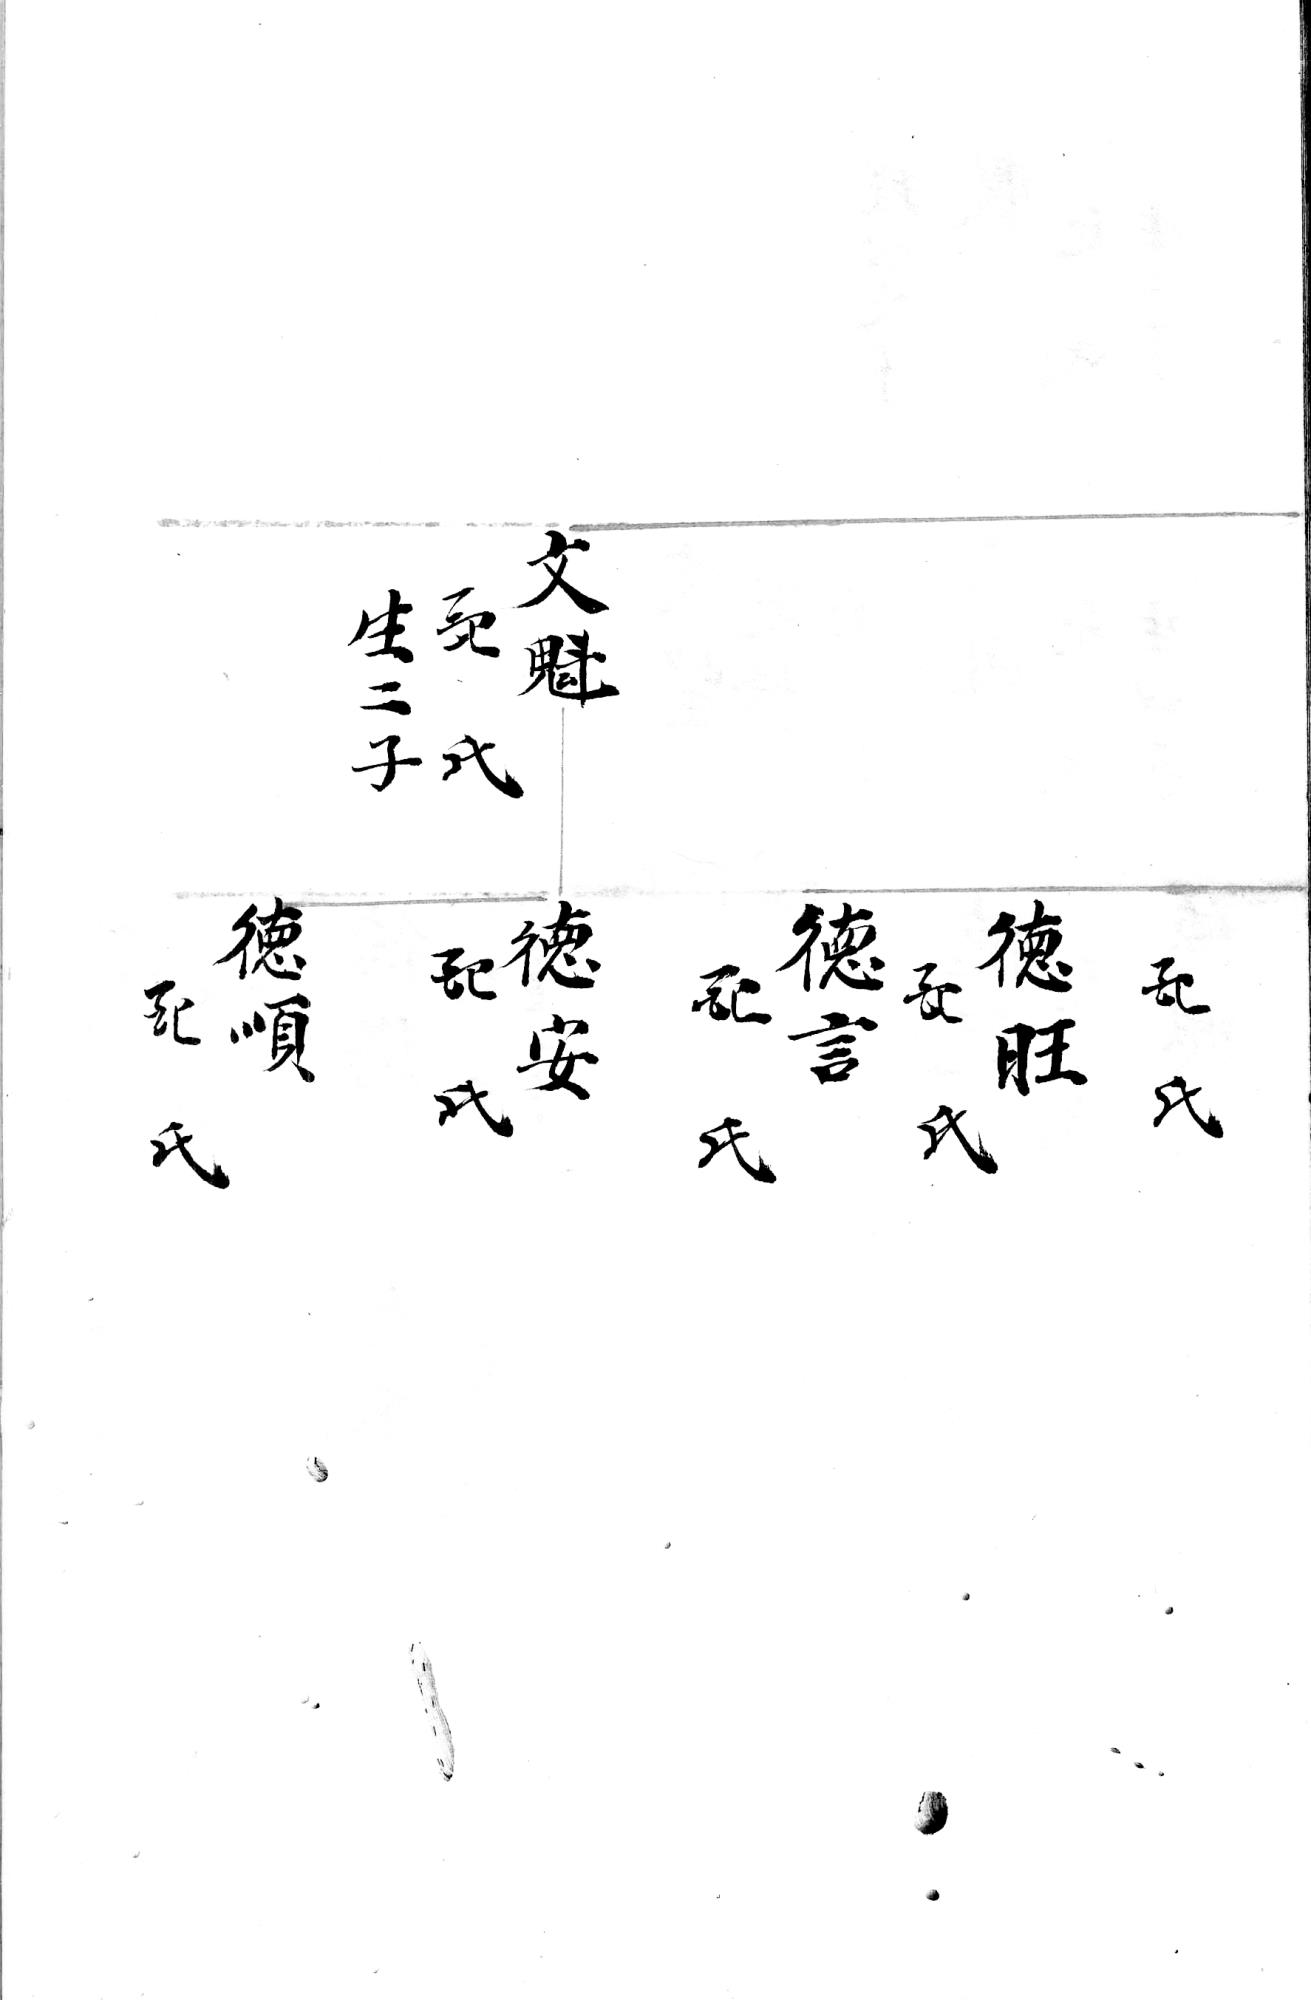 文魁
配 氏
生二子
配 氏
德旺
配 氏
德言
配 氏
德安
配 氏
德順
配 氏